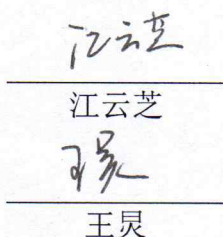 江云芝
江云芝
王炅
王炅